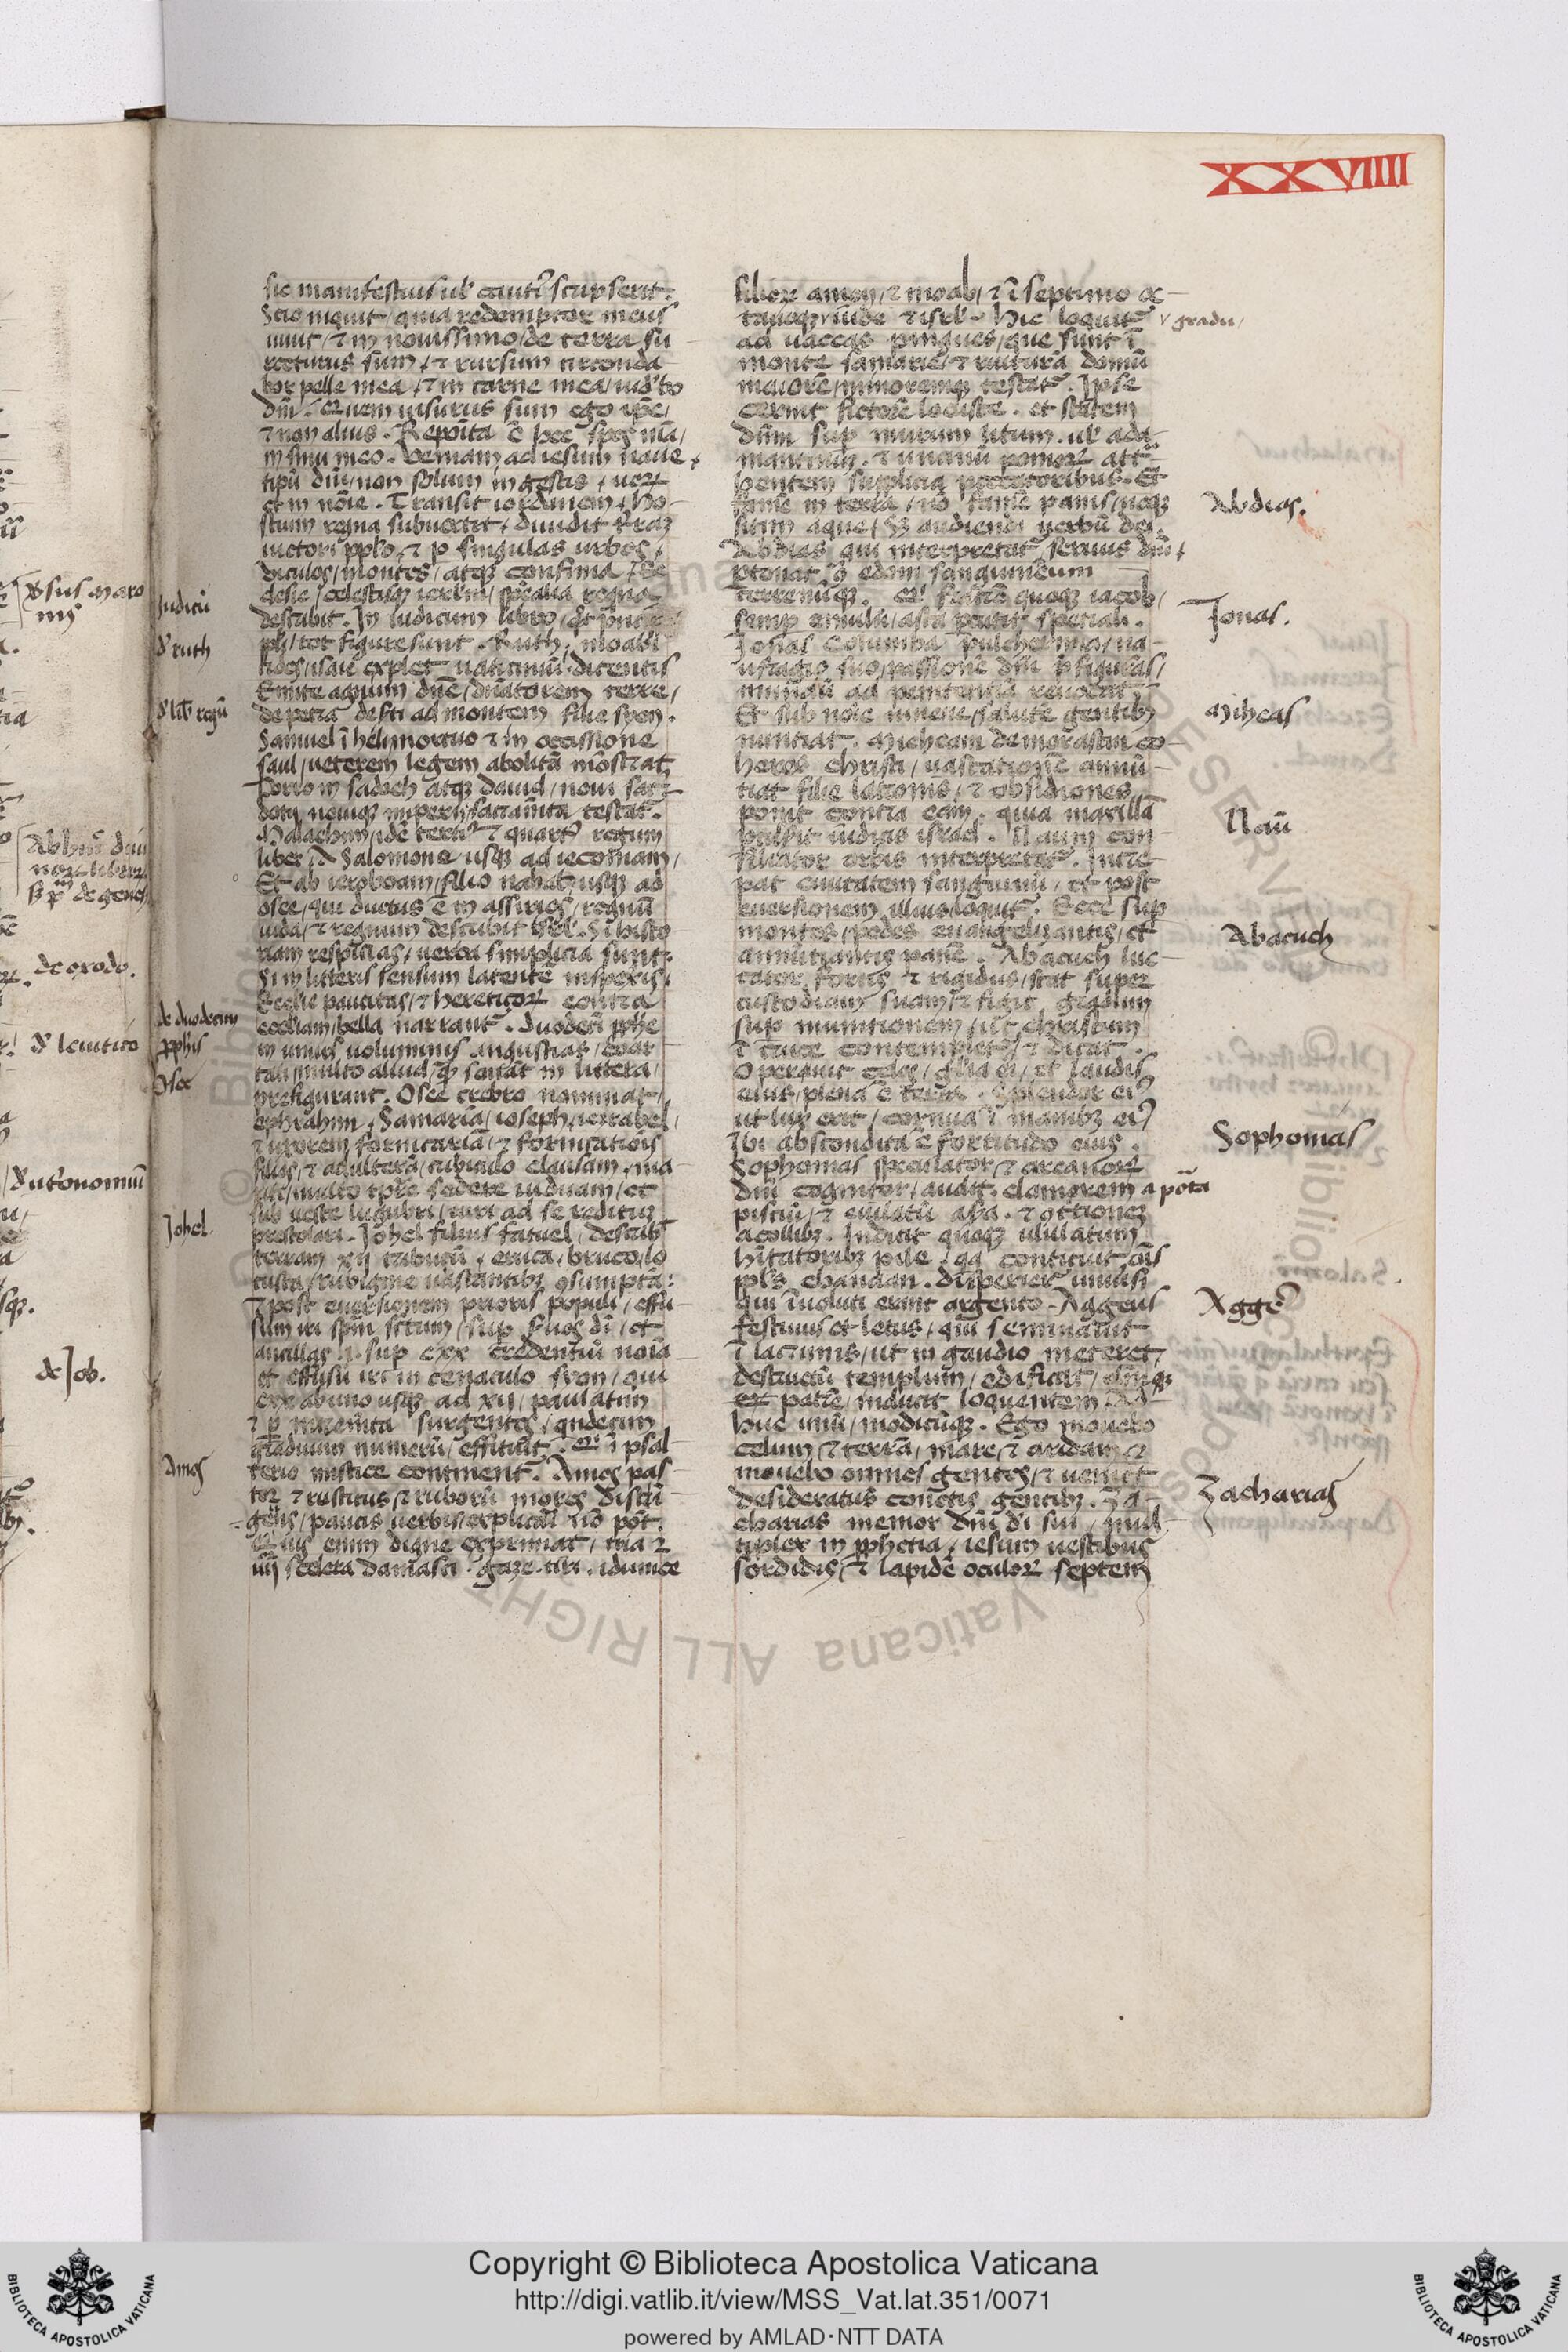 XXVIIII
sic manifestius ul' cauti9 scripserit.
Scio inquit / quia redemptor meus
uiuit / ⁊ in nouissimo / de terra su
recturus sum / ⁊ rursum circunda
bor pelle mea / ⁊ in carne mea / uid'bo
dm̄. que͂m uisurus sum ego ip̄e /
⁊ non alius. Reposita ē hec spes m̄a /
in sinu meo. Veniam ad iesum naue
tipū dn̄i / non solum in gestis / ueꝝ
et in nōie. Transit iordanem / ho
stium regna subuertit / diuidit t'raꝫ
uictori pplo / ⁊ p singulas urbes /
uiculos / montes / atqꝫ confinia / ec
clesie / celestisqꝫ ierl'm / sp̄ealia regna
describit. In iudicum libro / qt̄ pn̄cip
pes / tot figure sunt. Ruth / moabi
tides / isaie explet uaticiniū dicentis
Emitte agnum dn̄e / dn̄atorem terre /
de petra deserti ad montem filie syon.
Samuel ī hely mortuo ⁊ in occissione
saul / ueterem legem abolitā mōstrat
Porro in sadoch atqꝫ dauid / noui sac̄
dotij nouiqꝫ imperij sacram̄ta testat᷑.
Malachim / id ē terti9 ⁊ quart9 regum
liber / A Salomone usqꝫ ad ieconiam /
Et ab ieroboam / filio nabath usqꝫ ad
osee / qui ductus ē in assirios / regnū
iuda / ⁊ regnum describit isrl'. Si histo
riam respicias / uerba simplicia sunt.
Si in litteris sensum latentē inspexeris
Ecclie paucitas / ⁊ hereticoꝝ contra
eccliam / bella narrant᷑. Duodeci pphe
in unius uoluminis angustias / coar
tati / multo aliud / qm̄ sonāt in littera /
prefigurant. Osee crebro nominat /
ephraim / Samariā / ioseph / iezrahel /
⁊ uxorem fornicariā / ⁊ fornicationis
filios / ⁊ adulterā / cubiculo clausam / ma
riti / multo tp̄re sedere uiduam / et
sub ueste lugubri / uiri ad se reditū
prestolari. Johel filius fatuel / describ
terram xij tribuū / eruca / bruco / lo
custa / rubigine uastantibꝫ ꝯsumptā:
⁊ post euersionem prioris populi / effu
sum iri spm̄ sctum / sup suos dī / et
ancillas .i. sup cxx credentiū noīa
et effusū iri in cenaculo syon / qui
cxx ab uno usqꝫ ad xv / paulatim
⁊ p incrementa surgentes / qindecim
graduum numerū / efficiūt. qi ī psal
terio mistice continent᷑. Amos pas
tor ⁊ rusticus / ⁊ ruborū mores distrī
gens / paucis uerbis explicari nō pōt.
Quis enim digne exprimat / tria ⁊
iiij scelera damasci. gaze. tiri. idumee
filioꝝ amon / ⁊ moab / ⁊ ī septimo oc
tauoqꝫ iude ⁊ isrl'. Hic loquit᷑
ad uaccas pingues / que sunt ī
monte samarie / ⁊ ruiturā domū
maiorē / minoremqꝫ testat᷑. Ipse
cernit fictorē locuste. et stātem
dn̄m sup murum litum. ul' ada
mantinū. ⁊ uncinū pomoꝝ att
hentem supplicia peccatoribus. Et
famē in terrā / nō famē panis / neqꝫ
sitim aque / sꝫ audiendi uerbū dei.
Abdias qui interpretat᷑ seruus dn̄i
ptonat ꝯ edom sanguineum
terrenūqꝫ. qi frātrē quoqꝫ iacob /
semp emulū / asta pcutit sp̄eciali.
Jonas Columba pulcherrima / na
ufragio suo / passionē dn̄i p̄figurās /
mundū ad penitentiā reuocat.
Et sub noīe niniue / salutē gentibꝫ
nuntiat. Micheam de morastim co
heres christi / uastationē annū
tiat filie latronis / ⁊ obsidiones
ponit contra eam. quia maxillā
pcussit iudicis israel. Naum con
solator orbis interpretat᷑. Incre
pat ciuitatem sanguinū / et post
euersionem illius loquit᷑. Ecce sup
montes / pedes euangelizantis / et
annūtiantis pacē. Abacuch luc
tator fortis ⁊ rigidus / stat super
custodiam suam / ⁊ figit gradum
sup munitionem / ut christum
ī cruce contemplet᷑ / ⁊ dicat.
Operuit celos / gl'ia ei / et laudis
eius / plena ē terra. Splendor ei9
ut lux erit / cornua ī manibꝫ ei9
Ibi abscondita ē fortitudo eius.
Sophonias speculator ⁊ arcanoꝝ
dn̄i cognitor / audit clamorem a porta
pisciū / ⁊ eiulatū a scda. ⁊ ꝯtritionē
a collibꝫ. Indicit quoqꝫ ululatum
habitatoribꝫ pile / qa conticuit ōis
ppl's chanaan. disperiert uniūsi
qui īuoluti erant argento. Aggeus
festiuus et letus / qui seminauit
ī lacrimis / ut in gaudio meteret /
destructū templum / edificat / dm̄qꝫ
patrē / inducit loquentem. Ad
huc unū / modicūqꝫ. Ego mouebo
celum / ⁊ terrā / mare / ⁊ aridam ⁊
mouebo omnes gentes / ⁊ ueniet
desideratus cunctis gentibꝫ. Za
charias memor dn̄i di sui / mul
tiplex in pphetia / iesum uestibus
sordidis / ⁊ lapidē oculoꝝ septem
Judicū
d' ruth
d' lib' regū
de duodecim
pphis
Osee
Johel.
Amos
gradu
Abdias.
Jonas.
Miheas
Naū
Abacuch
Sophonias
Agge9
Zacharias
de exodo.
d' leuitico
d'utonomiū
de Job.
Copyright © Biblioteca Apostolica Vaticana
http://digi.vatlib.it/view/MSS_Vat.lat.351/0071
powered by AMLAD·NTT DATA
BIBLIOTECA APOSTOLICA VATICANA
BIBLIOTECA APOSTOLICA VATICANA